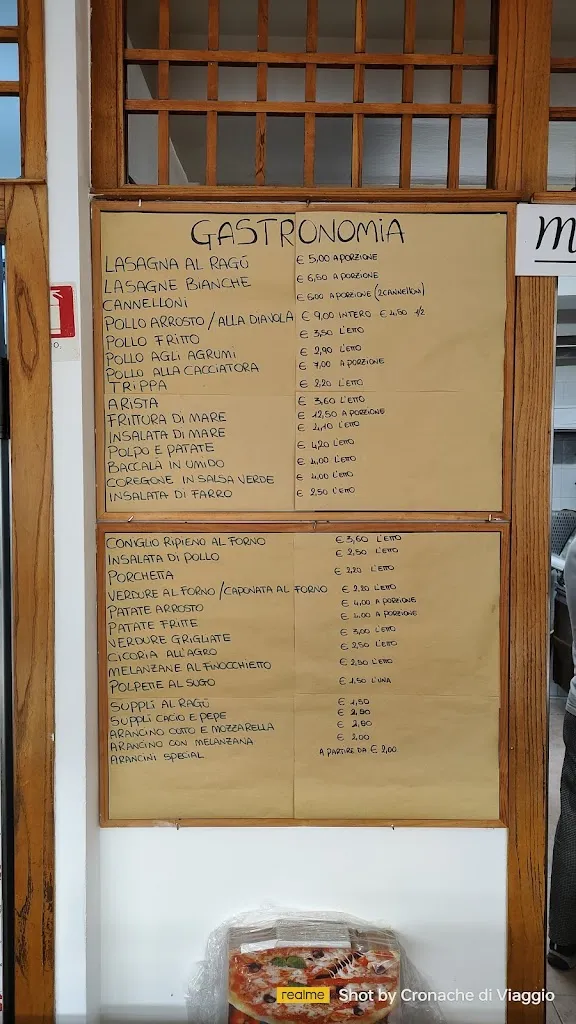 GASTRONOMIA
LASAGNA AL RAGÚ € 5,00 A PORZIONE
LASAGNE BIANCHE € 6,50 A PORZIONE
CANNELLONI € 6,00 A PORZIONE (2 CANNELLONI)
POLLO ARROSTO / ALLA DIAVOLA € 9,00 INTERO € 4,50 1/2
POLLO FRITTO € 3,50 L'ETTO
POLLO AGLI AGRUMI € 2,90 L'ETTO
POLLO ALLA CACCIATORA € 7,00 A PORZIONE
TRIPPA € 2,20 L'ETTO
ARISTA € 3,60 L'ETTO
FRITTURA DI MARE € 12,50 A PORZIONE
INSALATA DI MARE € 4,10 L'ETTO
POLPO E PATATE € 4,20 L'ETTO
BACCALÀ IN UMIDO € 4,00 L'ETTO
COREGONE IN SALSA VERDE € 4,00 L'ETTO
INSALATA DI FARRO € 2,50 L'ETTO
CONIGLIO RIPIENO AL FORNO € 3,60 L'ETTO
INSALATA DI POLLO € 2,50 L'ETTO
PORCHETTA € 2,20 L'ETTO
VERDURE AL FORNO / CAPONATA AL FORNO € 2,20 L'ETTO
PATATE ARROSTO € 4,00 A PORZIONE
PATATE FRITTE € 4,00 A PORZIONE
VERDURE GRIGLIATE € 3,00 L'ETTO
CICORIA ALL'AGRO € 2,50 L'ETTO
MELANZANE AL FINOCCHIETTO € 2,50 L'ETTO
POLPETTE AL SUGO € 1,50 L'UNA
SUPPLÌ AL RAGÚ € 1,50
SUPPLÌ CACIO E PEPE € 2,50
ARANCINO COTTO E MOZZARELLA €
ARANCINO CON MELANZANA € 2,00
ARANCINI SPECIAL A PARTIRE DA € 2,00
m
realme Shot by Cronache di Viaggio